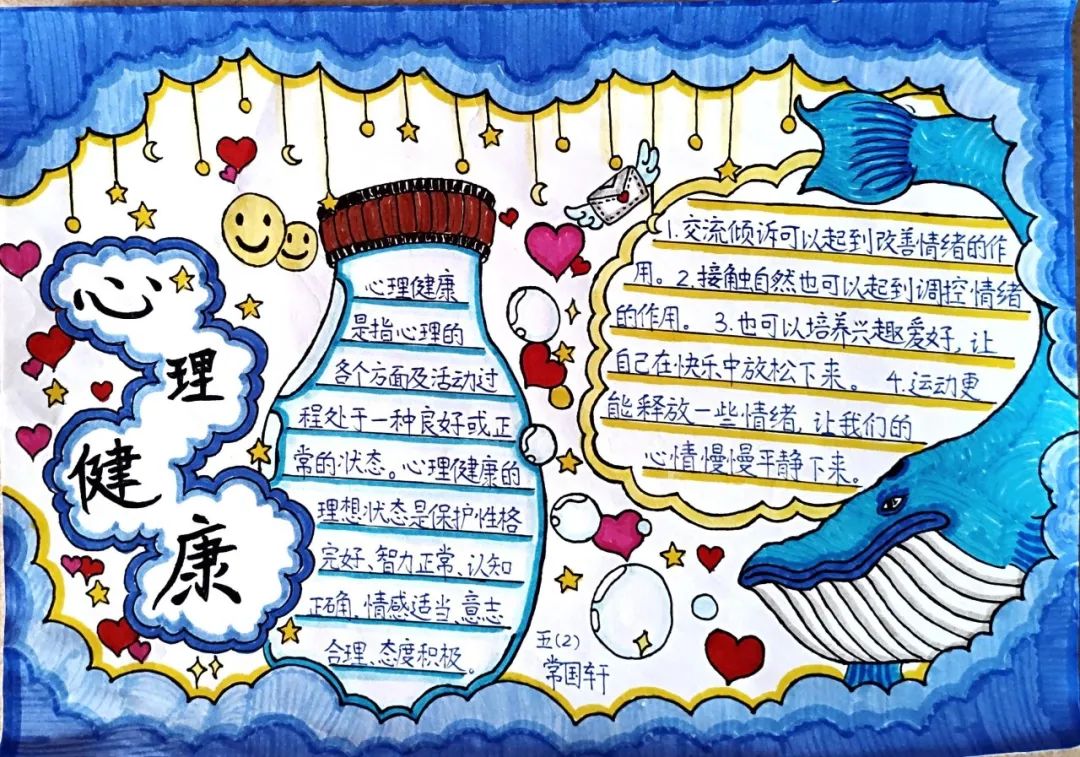 心
理
健
康
心理健康
是指心理的
各个方面及活动过
程处于一种良好或正
常的状态。心理健康的
理想状态是保护性格
完好、智力正常、认知
正确、情感适当、意志
合理、态度积极。
1.交流倾诉可以起到改善情绪的作
用。2.接触自然也可以起到调控情绪
的作用。3.也可以培养兴趣爱好,让
自己在快乐中放松下来。4.运动更
能释放一些情绪,让我们的
心情慢慢平静下来。
五(2)
常国轩